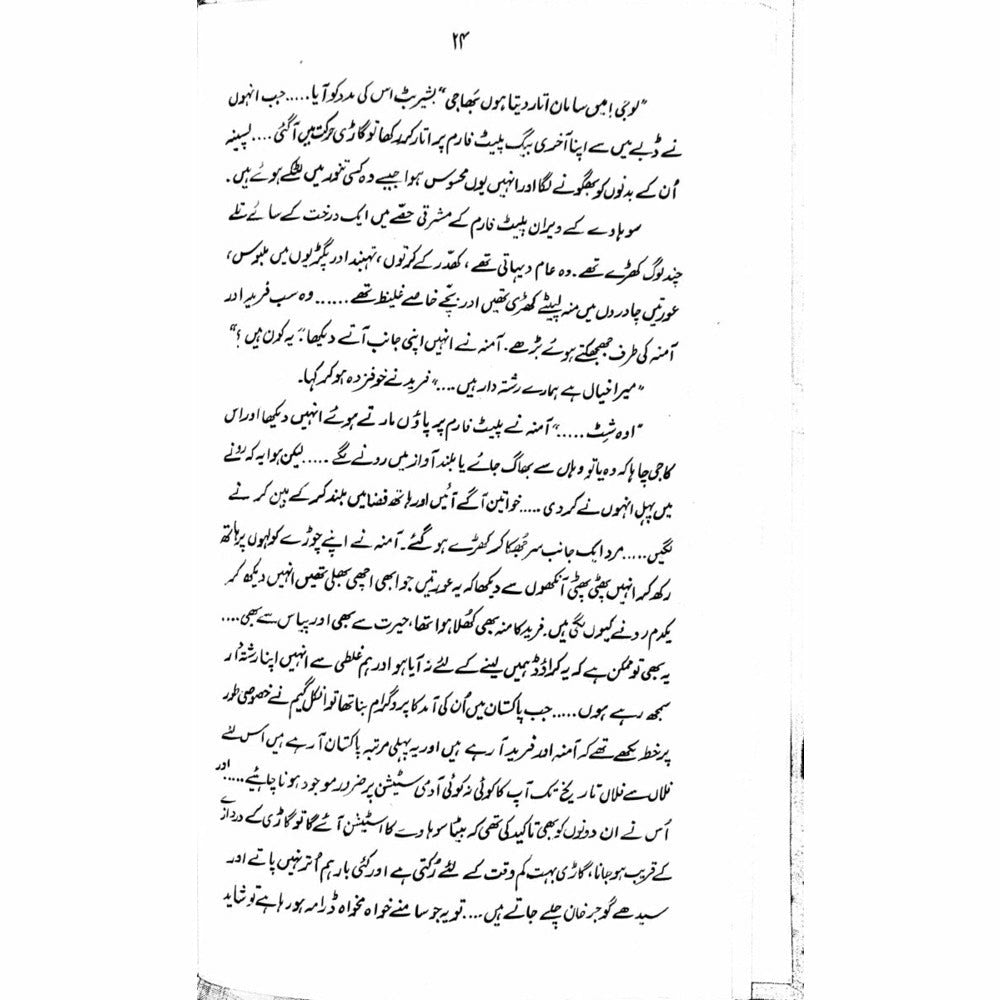 ۲۴
"لوجی! میں سامان اتار دیتا ہوں بھاجی" بشیر بٹ اس کی مدد کو آیا.....جب انہوں
نے ڈبے میں سے اپنا آخری بیگ پلیٹ فارم پر اتار کر رکھا تو گاڑی حرکت میں آ گئی....پسینہ
اُن کے بدنوں کو بھگونے لگا اور انہیں یوں محسوس ہوا جیسے وہ کسی تنور میں لٹکے ہوئے ہیں۔
سوہاوے کے ویران پلیٹ فارم کے مشرقی حصّے میں ایک درخت کے سائے تلے
چند لوگ کھڑے تھے۔ وہ عام دیہاتی تھے، کھدّر کے کرتوں، تہبند اور پگڑیوں میں ملبوس،
عورتیں چادروں میں منہ لپیٹے کھڑی تھیں اور بچّے خاصے غلیظ تھے......وہ سب فرید اور
آمنہ کی طرف جھجکتے ہوئے بڑھے۔ آمنہ نے انہیں اپنی جانب آتے دیکھا۔ "یہ کون ہیں؟"
"میرا خیال ہے ہمارے رشتہ دار ہیں...." فرید نے خوفزدہ ہو کر کہا۔
"اوہ شِٹ....." آمنہ نے پلیٹ فارم پر پاؤں مارتے ہوئے انہیں دیکھا اور اس
کا جی چاہا کہ وہ یا تو وہاں سے بھاگ جائے یا بلند آواز میں رونے لگے.....لیکن ہوا یہ کہ رونے
میں پہل انہوں نے کر دی.....خواتین آگے آئیں اور ہاتھ فضا میں بلند کر کے بین کرنے
لگیں.....مرد ایک جانب سر جُھکا کر کھڑے ہو گئے۔ آمنہ نے اپنے چوڑے کولہوں پر ہاتھ
رکھ کر انہیں پھٹی پھٹی آنکھوں سے دیکھا کہ یہ عورتیں جو ابھی اچھی بھلی تھیں انہیں دیکھ کر
یکدم رونے کیوں لگی ہیں۔ فرید کا منہ بھی کُھلا ہوا تھا، حیرت سے بھی اور پیاس سے بھی....
یہ بھی تو ممکن ہے کہ یہ کراؤڈ ہمیں لینے کے لئے نہ آیا ہو اور ہم غلطی سے انہیں اپنا رشتہ دار
سمجھ رہے ہوں.....جب پاکستان میں اُن کی آمد کا پروگرام بنا تھا تو انکل گیم نے خصوصی طور
پر خط لکھے تھے کہ آمنہ اور فرید آ رہے ہیں اور یہ پہلی مرتبہ پاکستان آ رہے ہیں اس لئے
فلاں سے فلاں تاریخ تک آپ کا کوئی نہ کوئی آدمی سٹیشن پر ضرور موجود ہونا چاہئیے.....اور
اُس نے ان دونوں کو بھی تاکید کی تھی کہ بیٹا سوہاوے کا اسٹیشن آئے گا تو گاڑی کے دروازے
کے قریب ہو جانا، گاڑی بہت کم وقت کے لئے رُکتی ہے اور کئی بار ہم اُتر نہیں پاتے اور
سیدھے گوجر خان چلے جاتے ہیں....تو یہ جو سامنے خواہ مخواہ ڈرامہ ہو رہا ہے تو شاید